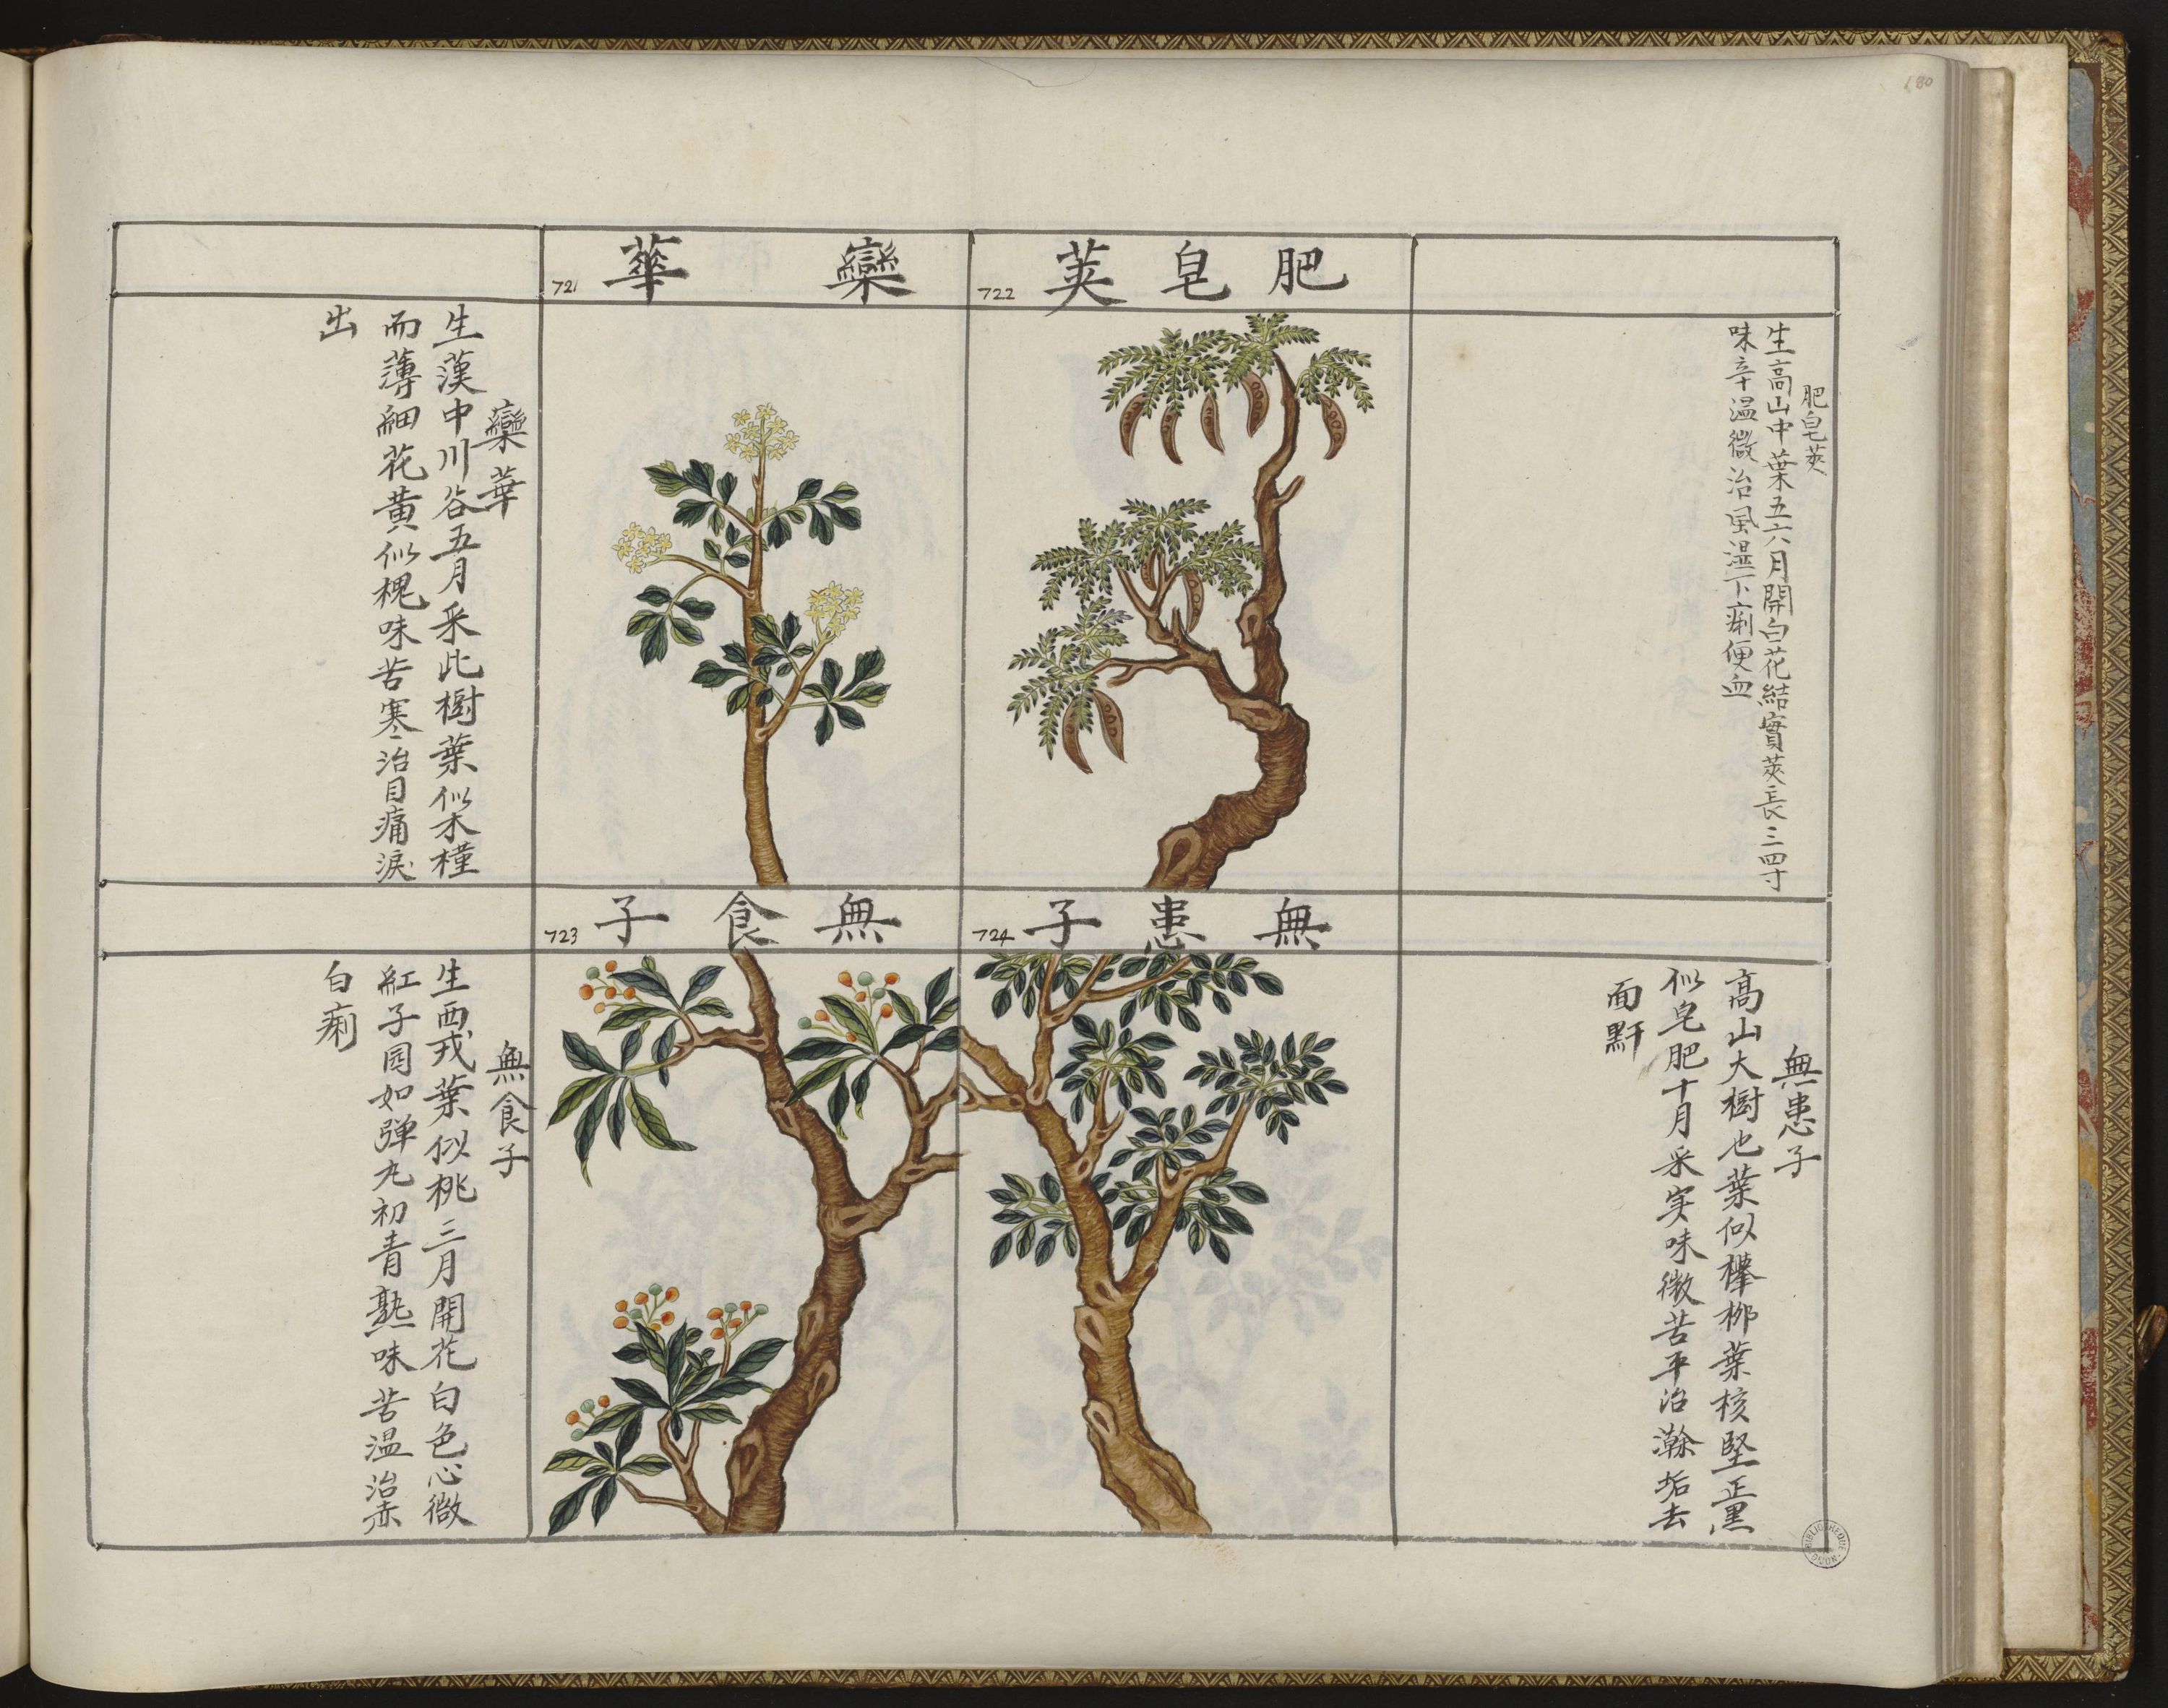 180
肥皂莢
722
欒華
721
肥皂莢
生高山中葉五六月開白花結實莢長三四寸
味辛温微治風湿下痢便血
欒華
生漢中川谷五月采此樹葉似木槿
而薄細花黄似槐味苦寒治目痛淚
出
無患子
724
無食子
723
無患子
高山大樹也葉似欅柳葉核堅正黒
似皂肥十月采実味微苦平治澣垢去
面䵟
無食子
生西戎葉似桃三月開花白色心微
紅子圆如弹丸初青熟味苦温治赤
白痢